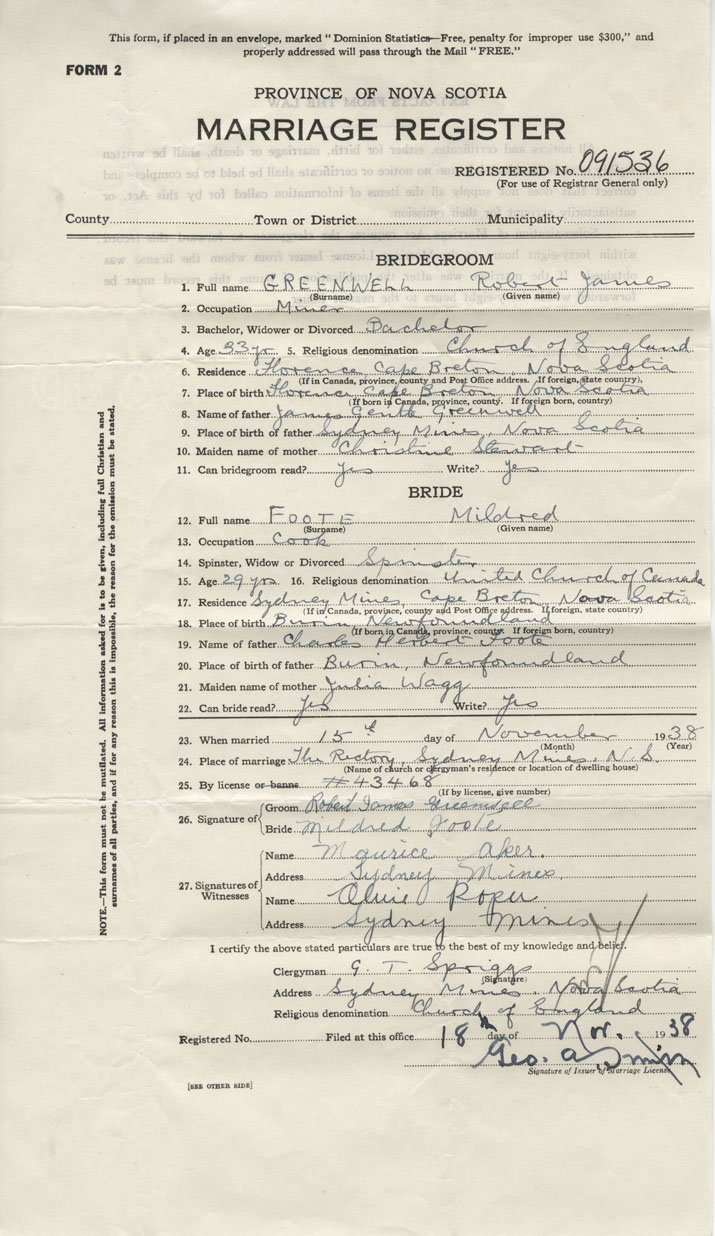 This form, if placed in an envelope, marked "Dominion Statistics—Free, penalty for improper use $300," and
properly addressed will pass through the Mail "FREE."
FORM 2
PROVINCE OF NOVA SCOTIA
MARRIAGE REGISTER
REGISTERED No. 091536
(For use of Registrar General only)
County Town or District Municipality
BRIDEGROOM
1. Full name GREENWELL Robert James
(Surname) (Given name)
2. Occupation Miner
3. Bachelor, Widower or Divorced Bachelor
4. Age 33 yr 5. Religious denomination Church of England
6. Residence Florence, Cape Breton, Nova Scotia
(If in Canada, province, county and Post Office address. If foreign, state country).
7. Place of birth Florence Cape Breton, Nova Scotia
(If born in Canada, province, county. If foreign born, country)
8. Name of father James Gentle Greenwell
9. Place of birth of father Sydney Mines, Nova Scotia
10. Maiden name of mother Christine Stewart
11. Can bridegroom read? Yes Write? Yes
BRIDE
12. Full name FOOTE Mildred
(Surname) (Given name)
13. Occupation Cook
14. Spinster, Widow or Divorced Spinster
15. Age 29 yrs 16. Religious denomination United Church of Canada
17. Residence Sydney Mines, Cape Breton, Nova Scotia
(If in Canada, province, county and Post Office address. If foreign, state country)
18. Place of birth Burin, Newfoundland
(If born in Canada, province, county. If foreign born, country)
19. Name of father Charles Herbert Foote
20. Place of birth of father Burin, Newfoundland
21. Maiden name of mother Julia Wagg
22. Can bride read? Yes Write? Yes
23. When married 15th day of November 1938
(Month) (Year)
24. Place of marriage The Rectory, Sydney Mines, N.S.
(Name of church or clergyman's residence or location of dwelling house)
25. By license or banns #43468
(If by license, give number)
26. Signature of
Groom Robert James Greenwell
Bride Mildred Foote
27. Signatures of Witnesses
Name Maurice Aker.
Address Sydney Mines.
Name Olive Roper
Address Sydney Mines
I certify the above stated particulars are true to the best of my knowledge and belief.
Clergyman G. T. Spriggs
(Signature)
Address Sydney Mines, Nova Scotia
Religious denomination Church of England
Registered No. Filed at this office 18th day of Nov. 1938
Geo. A
Signature of Issuer of Marriage License
[SEE OTHER SIDE]
NOTE.—This form must not be mutilated. All information asked for is to be given, including full Christian and
surnames of all parties, and if for any reason this is impossible, the reason for the omission must be stated.